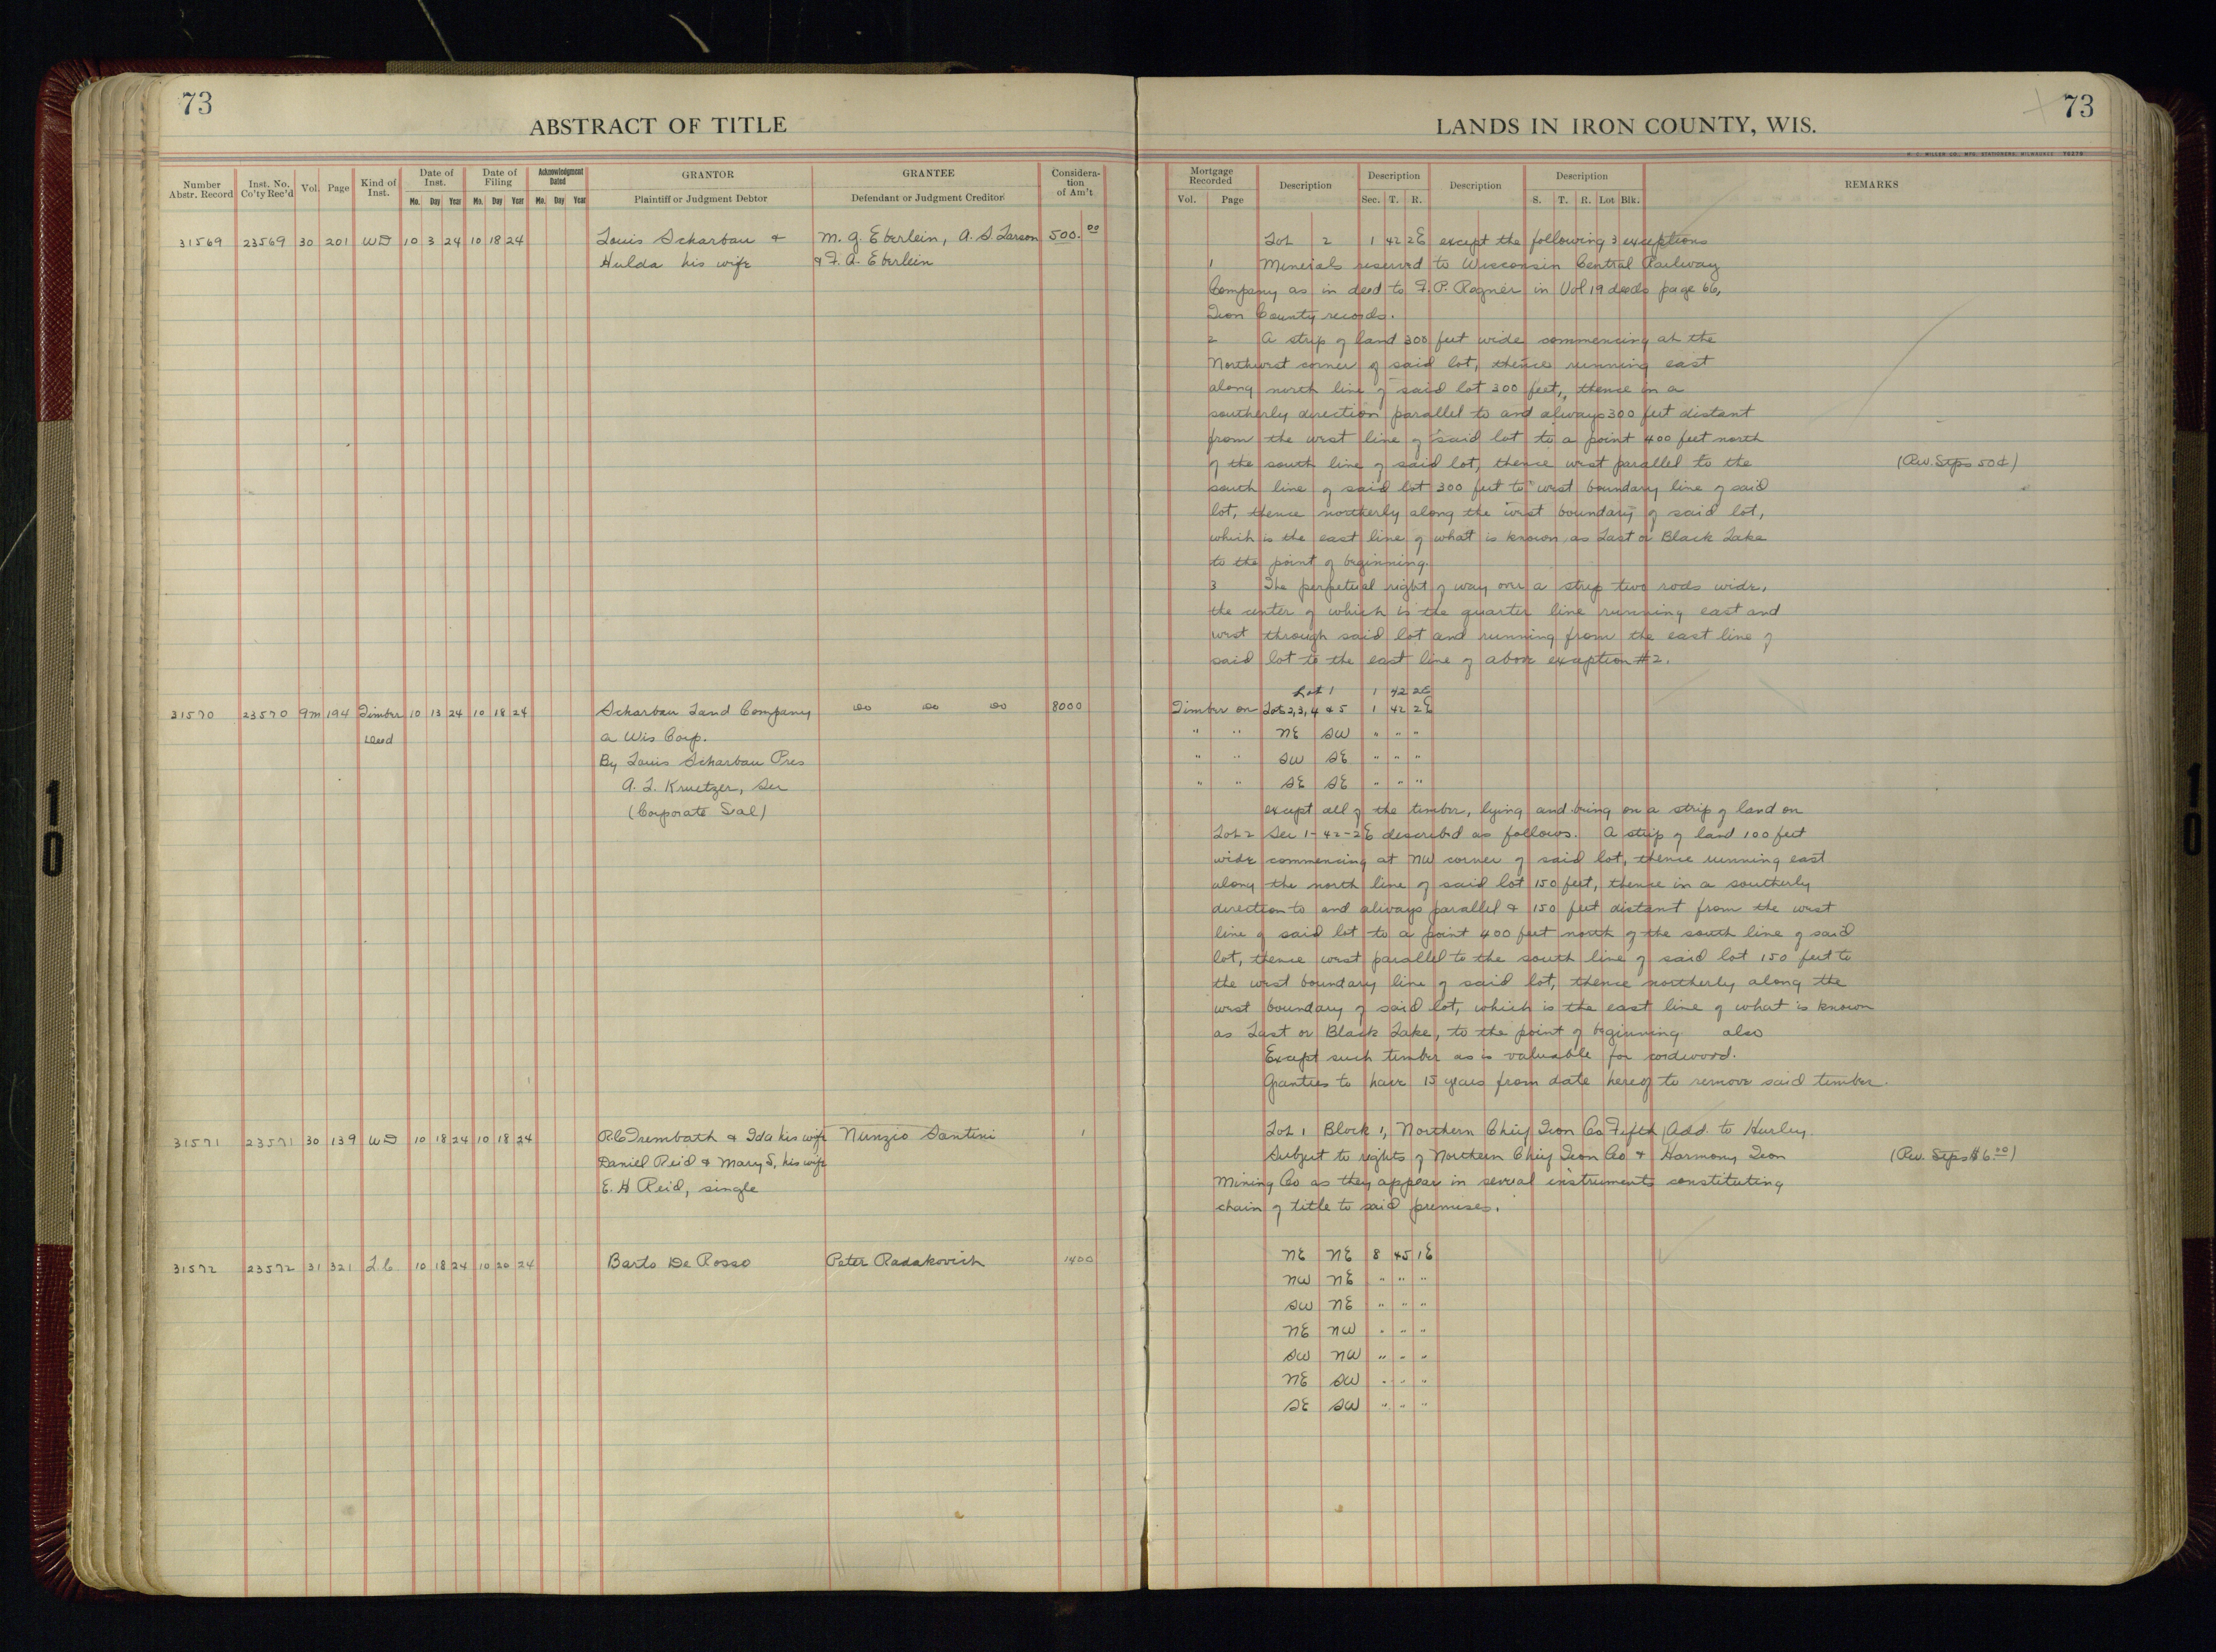 73
ABSTRACT OF TITLE
Number Abstr. Record Inst. No. Co'ty Rec'd Vol. Page Kind of Inst. Date of Inst. Mo. Day Year Date of Filing Mo. Day Year Acknowledgment Dated Mo. Day Year GRANTOR Plaintiff or Judgment Debtor GRANTEE Defendant or Judgment Creditor Consideration of Am't
31569 23569 30 201 WD 10 3 24 10 18 24 Louis Scharbau & M. G. Eberlein, A. S. Larson 500.00
Hulda his wife & F. A. Eberlein
31570 23570 9m 194 Timber 10 13 24 10 18 24 Scharbau Land Company do do do 8000
Deed a Wis Corp.
By Louis Scharbau Pres
A. L. Kruetzer, Sec
(Corporate Seal)
31571 23571 30 139 WD 10 18 24 10 18 24 R.C. Trembath & Ida his wife Nunzio Santini 1
Daniel Reid & Mary S, his wife
E. H Reid, single
31572 23572 31 321 L.C. 10 18 24 10 20 24 Barto De Rosso Peter Radakovich 1400
73
LANDS IN IRON COUNTY, WIS.
H. C. MILLER CO., MFG. STATIONERS, MILWAUKEE
Mortgage Recorded Vol. Page Description Description Sec. T. R. Description Description S. T. R. Lot Blk. REMARKS
Lot 2 1 42 2E except the following 3 exceptions
1 Minerals reserved to Wisconsin Central Railway
Company as in deed to F. P. Ragner in Vol 19 deeds page 66,
Iron County records.
2 A strip of land 300 feet wide commencing at the
Northwest corner of said lot, thence running east
along north line of said lot 300 feet, thence in a
southerly direction parallel to and always 300 feet distant
from the west line of said lot to a point 400 feet north
of the south line of said lot, thence west parallel to the (Rev. Stps 50¢)
south line of said lot 300 feet to west boundary line of said
lot, thence northerly along the west boundary of said lot,
which is the east line of what is known as Last or Black Lake
to the point of beginning.
3 The perpetual right of way over a strip two rods wide,
the center of which is the quarter line running east and
west through said lot and running from the east line of
said lot to the east line of above exception #2.
Lot 1 1 42 2E
Timber on Lots 2, 3, 4 & 5 1 42 2E
" " NE SW " " "
" " SW SE " " "
" " SE SE " " "
except all of the timber, lying and being on a strip of land on
Lot 2 Sec 1-42-2E described as follows. A strip of land 100 feet
wide commencing at NW corner of said lot, thence running east
along the north line of said lot 150 feet, thence in a southerly
direction to and always parallel & 150 feet distant from the west
line of said lot to a point 400 feet north of the south line of said
lot, thence west parallel to the south line of said lot 150 feet to
the west boundary line of said lot, thence northerly along the
west boundary of said lot, which is the east line of what is known
as Last or Black Lake, to the point of beginning also
Except such timber as is valuable for cordwood.
Grantees to have 15 years from date hereof to remove said timber.
Lot 1 Block 1, Northern Chief Iron Co Fifth Add. to Hurley
Subject to rights of Northern Chief Iron Co & Harmony Iron (Rev. Stps $6.00)
Mining Co as they appear in several instruments constituting
chain of title to said premises.
NE NE 8 45 1E
NW NE " " "
SW NE " " "
NE NW " " "
SW NW " " "
NE SW " " "
SE SW " " "